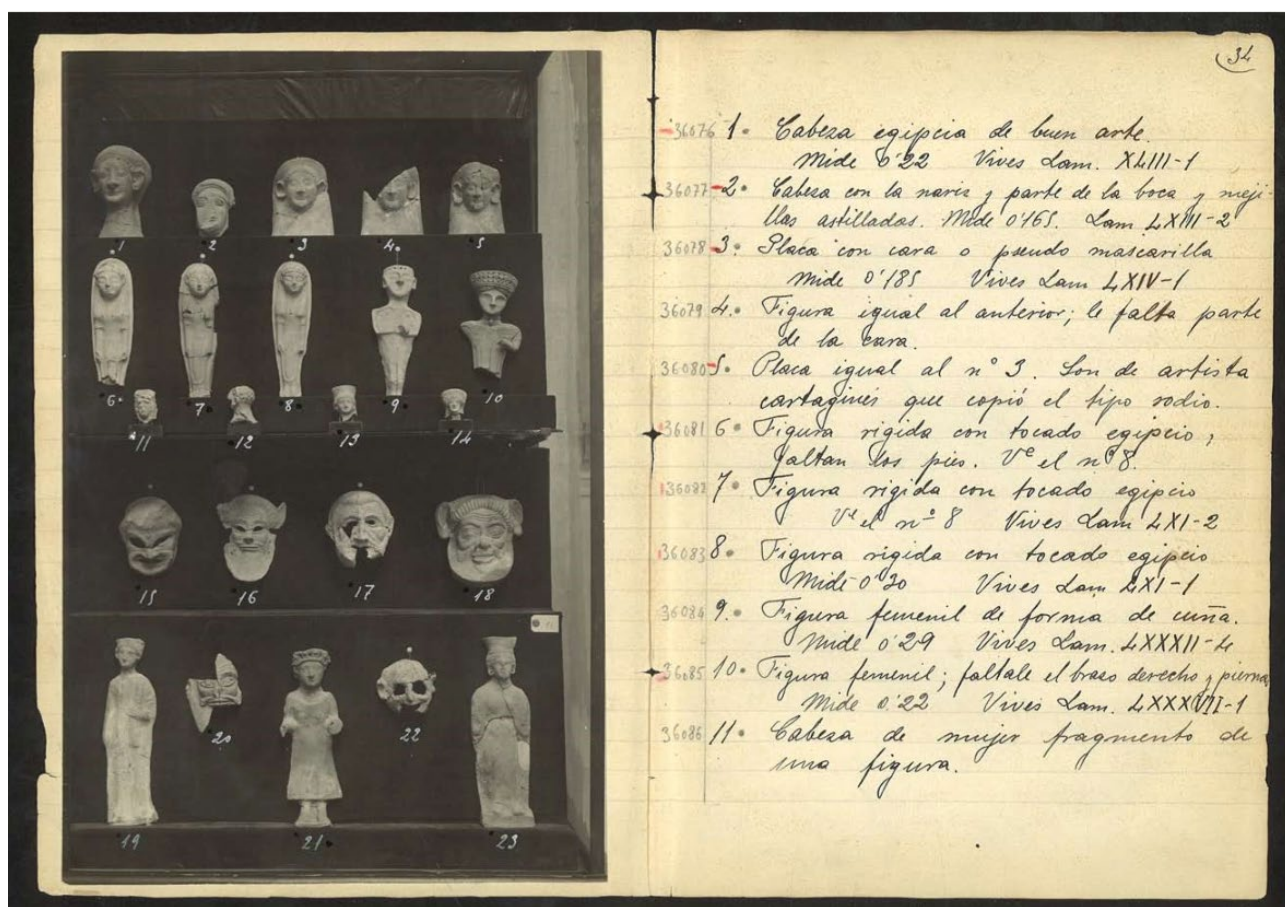 1 2 3 4 5
6 7 8 9 10
11 12 13 14
15 16 17 18
19 20 21 22 23
34
36076 1. Cabeza egipcia de buen arte.
Mide 0'22 Vives Lam. XLIII-1
36077 2. Cabeza con la nariz y parte de la boca y meji-
llas astilladas. Mide 0'165. Lam LXIII-2
36078 3. Placa con cara o pseudo mascarilla
Mide 0'185 Vives Lam LXIV-1
36079 4. Figura igual al anterior; le falta parte
de la cara.
36080 5. Placa igual al nº 3. Son de artista
cartaginés que copió el tipo rodio.
36081 6. Figura rigida con tocado egipcio;
faltan los pies. Vº el nº 8.
36082 7. Figura rigida con tocado egipcio
Vº el nº 8 Vives Lam LXI-2
36083 8. Figura rigida con tocado egipcio
Mide 0'30 Vives Lam LXI-1
36084 9. Figura femenil de forma de cuña.
Mide 0'29 Vives Lam. LXXXII-4
36085 10. Figura femenil; faltale el brazo derecho y piernas
Mide 0'22 Vives Lam. LXXXVII-1
36086 11. Cabeza de mujer fragmento de
una figura.